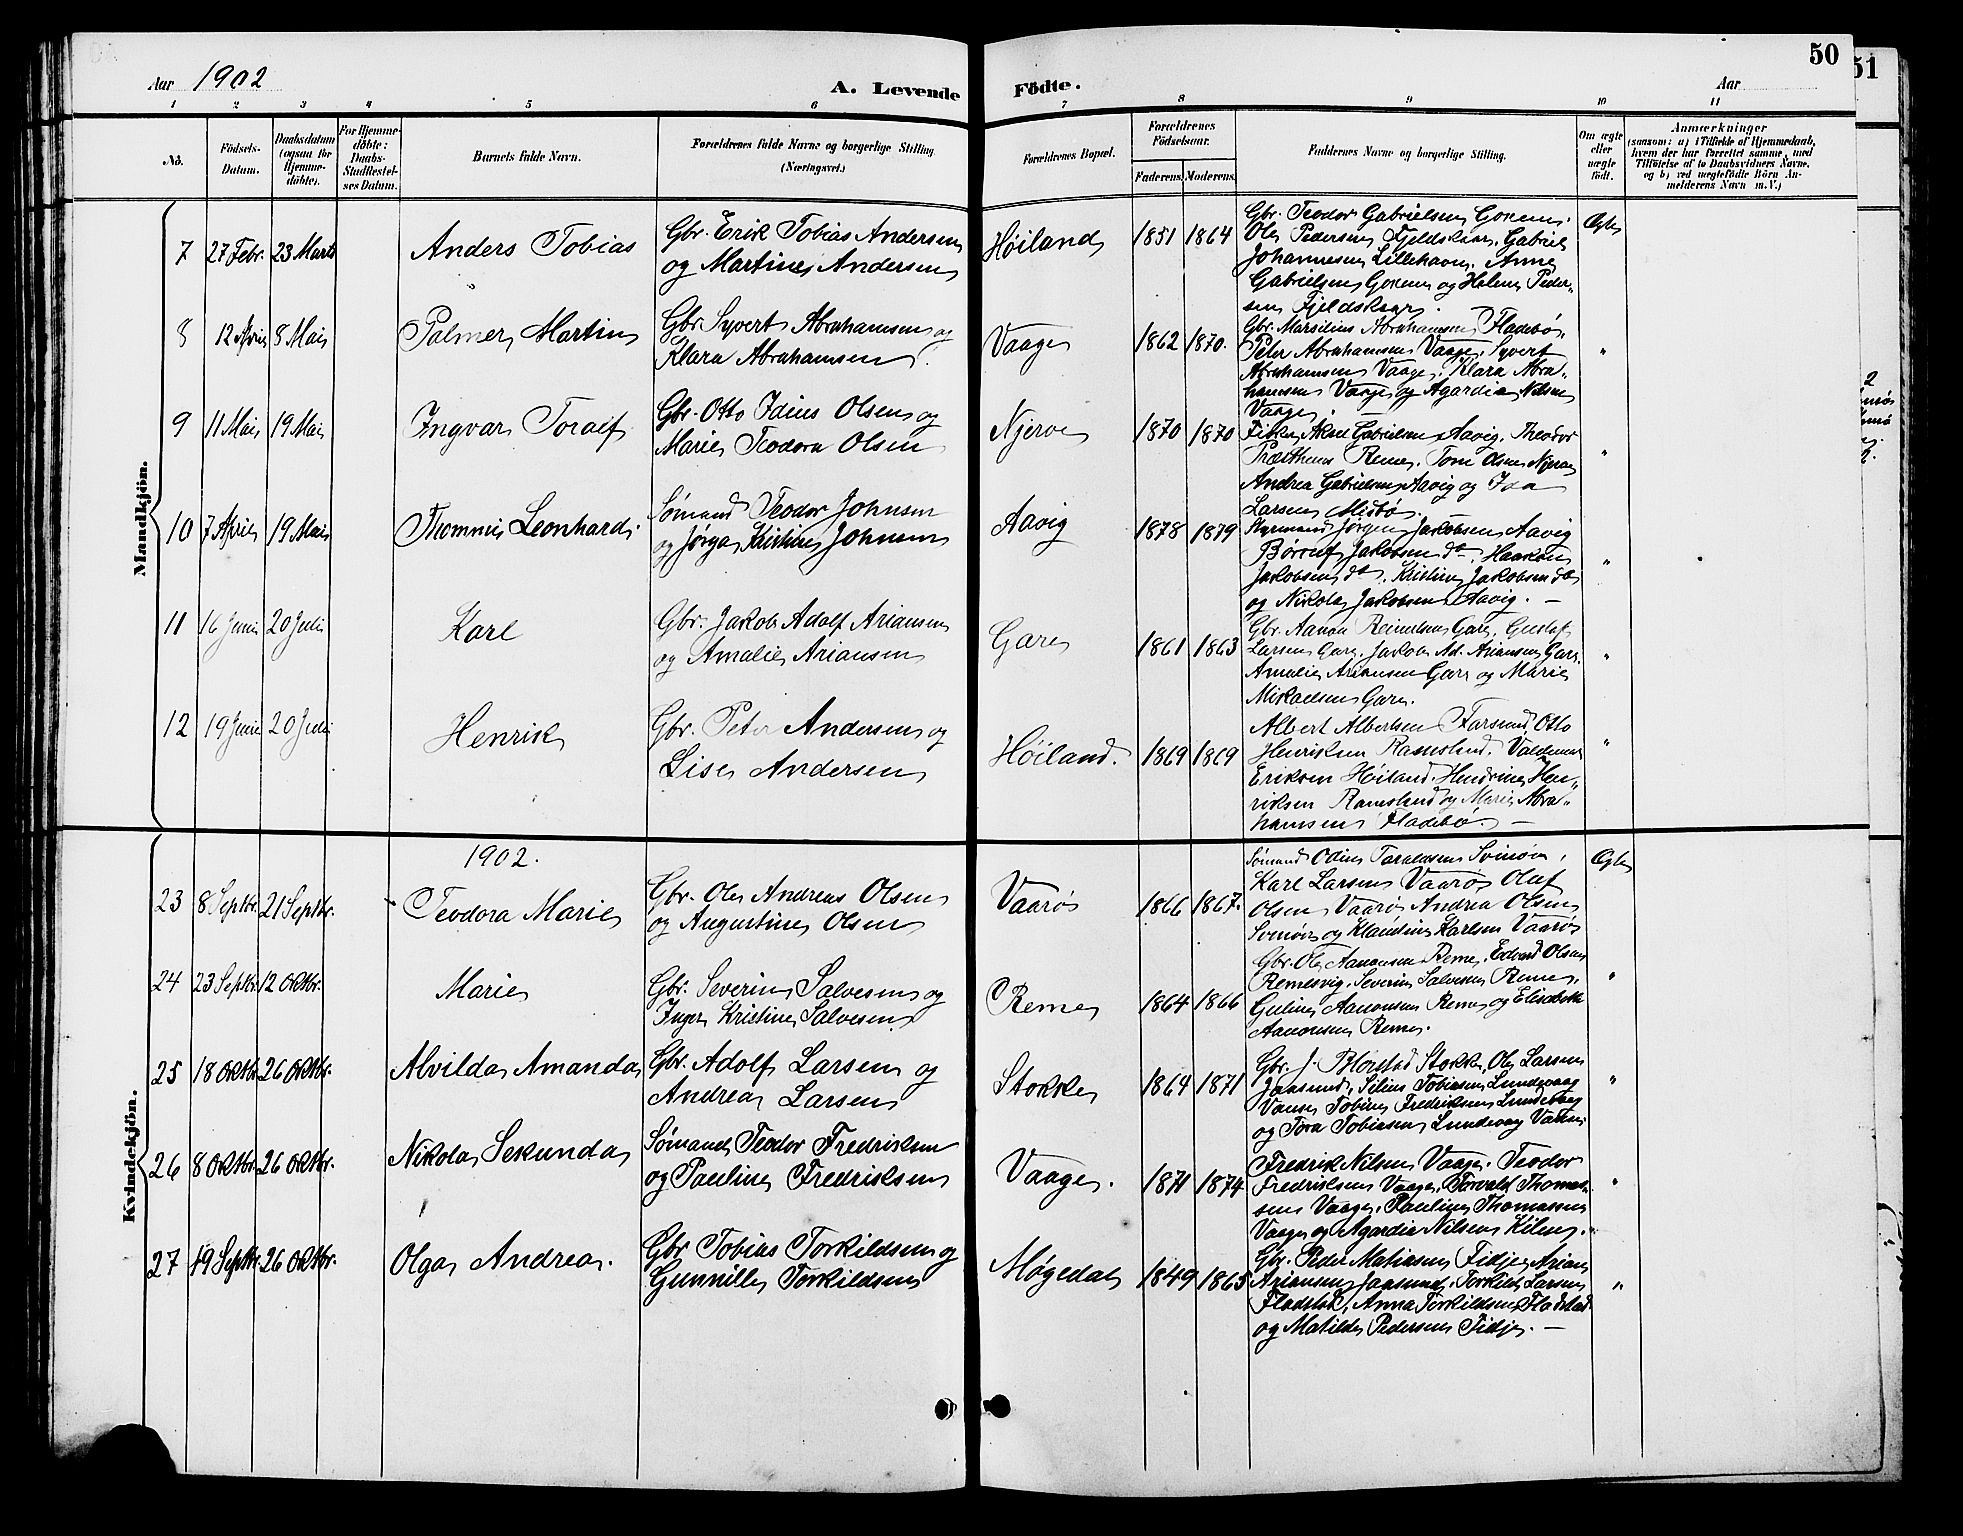 50
51
Aar 1902
A. Levende
Födte.
Aar
1 2 3 4 5 6 7 8 9 10 11
No.
Födsels-Datum.
Daabsdatum (ogsaa for Hjemme-döbte).
For Hjemme-döbte: Daabs-Stadfæstel-ses Datum.
Barnets fulde Navn.
Forældrenes fulde Navne og borgerlige Stilling
(Næringsvei.)
Forældrenes Bopæl.
Forældrenes Födselsaar.
Faderens. Moderens.
Faddernes Navne og borgerlige Stilling.
Om ægte eller uægte födt.
Anmærkninger
(saasom: a) i Tilfælde af Hjemmedaab,
hvem der har forrettet samme, med
Tilföielse af to Daabsvidners Navne,
og b) ved uægtefödte Börn An-
melderens Navn m. V.)
Mandkjön.
7 27 Febr. 23 Marts Anders Tobias
Gbr. Erik Tobias Andersen
og Martine Andersen
Høiland 1851 1864
Gbr. Teodor Gabrielsen
Ole Pedersen Fjeldskaar, Gabriel
Johannesen Lillehavn, Anne
Gabrielsen og Helene Peder-
sen Fjeldskaar.
Ægte
8 12 April 8 Mai Palmer Martin
Gbr. Syvert Abrahamsen og
Klara Abrahamsen.
Vaage 1862 1870.
Gbr. Marsilius Abrahamsen Fladebø,
Peter Abrahamsen Vaage, Syvert
Abrahamsen Vaage, Klara Abra-
hamsen Vaage og Agardia Nilsen
Vaage.
"
9 11 Mai 19 Mai Ingvar Toralf
Gbr. Otto Idius Olsen og
Marie Teodora Olsen
Njerve 1870 1870
Fisker Aksel Gabrielsen Aavig, Theodor
Remee, Tom Olsen Njerve
Andrea Gabrielsen Aavig og Ida
Larsen
"
10 7 April 19 Mai Thommis Leonhard
Sømand Teodor Johnsen
og Jørga Kristine Johnsen
Aavig 1878 1879
Styrmand Jørgen Jakobsen Aavig
Jakobsen do, Haakon
Jakobsen do, Kristine Jakobsen do
og Nikolai Jakobsen Aavig. —
"
11 16 Juni 20 Juli Karl
Gbr. Jakob Adolf Ariansen
og Amalie Ariansen
Gare 1861 1863
Gbr. Aanon Reinertsen Gare, Gustaf
Larsen Gare, Jakob Ad. Ariansen Gare,
Amalie Ariansen Gare og Marie
Mikaelsen Gare.
"
12 19 Juni 20 Juli Henrik
Gbr. Peter Andersen og
Lise Andersen
Høiland. 1869 1869
Albert Albertsen Farsund, Otto
Henriksen Ramsland, Valdemar
Eriksen Høiland, Hendrine Hen-
riksen Ramsland og Marie Abra-
hamsen Fladebø. —
"
Kvindekjön.
1902.
23 8 Septbr. 21 Septbr. Teodora Marie
Gbr. Ole Andreas Olsen
og Augustine Olsen
Vaarø 1866 1867.
Sømand Odin Taraldsen Svinøen,
Karl Larsen Vaarø, Oluf
Olsen Vaarø, Andrea Olsen
Svinøen og Klaudine Karlsen Vaarø
Ægte
24 23 Septbr. 12 Oktbr. Marie
Gbr. Severin Salvesen og
Inger Kristine Salvesen
Reme 1864 1866
Gbr. Ole Aanonsen Reme, Edvard Olsen
Remesvig, Severin Salvesen Reme,
Guline Aanonsen Reme og Elisabeth
Aanonsen Reme.
"
25 18 Oktbr. 26 Oktbr. Alvilda Amanda
Gbr. Adolf Larsen og
Andrea Larsen
Stokke 1864 1871
Gbr. J. Stokke, Ole Larsen
Jaasund, Silius Tobiasen Lundevaag
Vanse, Tobine Fredriksen Lundevaag
og Tora Tobiasen Lundevaag Vanse
"
26 8 Oktbr. 26 Oktbr. Nikolai Sekunda
Sømand Teodor Fredriksen
og Pauline Fredriksen
Vaage. 1871 1874
Fredrik Nilsen Vaage, Teodor
Fredriksen Vaage, Torvald Thomas-
sen Vaage, Pauline Thomassen
Vaage og Agardia Nilsen Kilen.
"
27 19 Septbr. 26 Oktbr. Olga Andrea.
Gbr. Tobias Torkildsen og
Gunnille Torkildsen
Møgedal 1849 1865
Gbr. Peder Matiasen Fidje, Arian
Ariansen Jaasund, Torkild Larsen
Fladstok, Anna Torkildsen Fladstad
og Matilde Pedersen Fidje. —
"